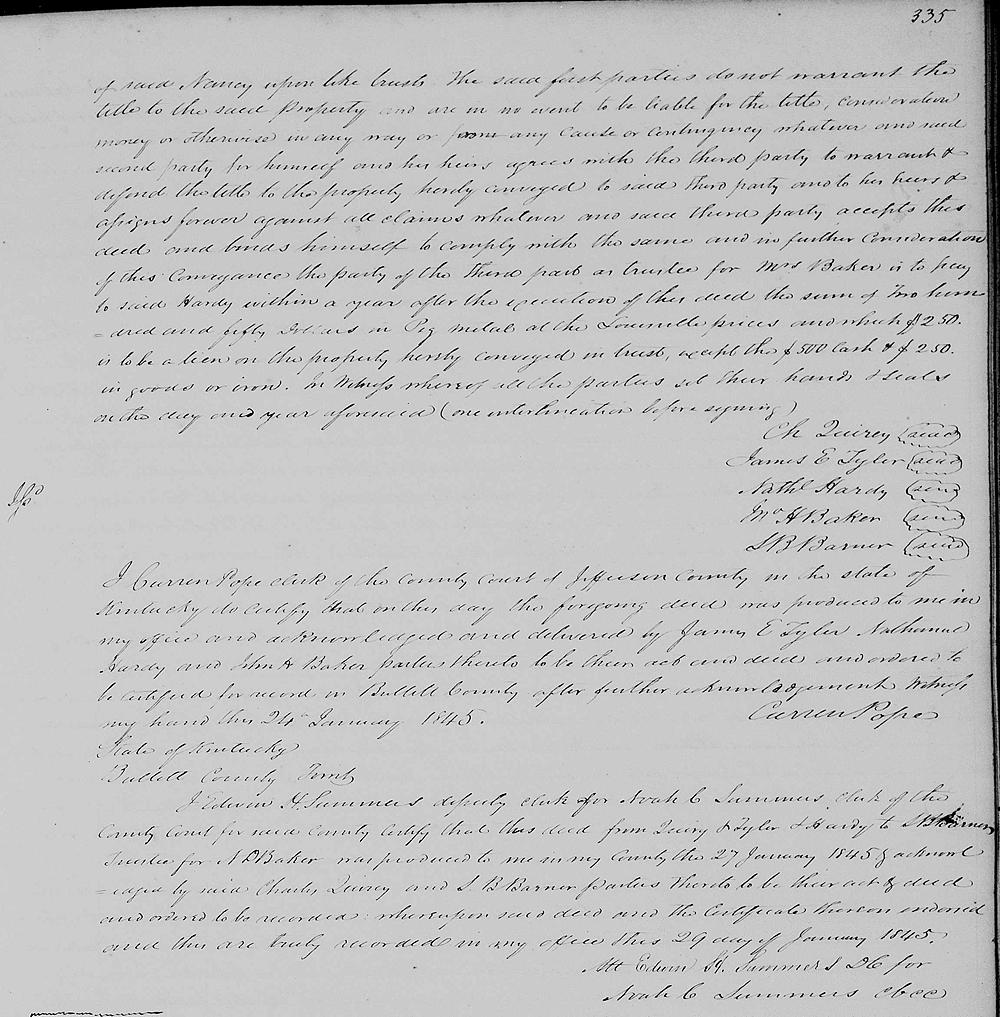 335
of said Nancy upon like trusts. The said first parties do not warrant the
title to the said Property and are in no event to be liable for the title, consideration
money or otherwise in any way or from any cause or contingency whatever and said
second party for himself and his heirs agrees with the third party to warrant &
defend the title to the property herby conveyed to said third party and to his heirs &
assigns forever against all claims whatever and said third party accepts this
deed and binds himself to comply with the same and in further consideration
of this Conveyance the party of the third part as trustee for Mrs Baker is to pay
to said Hardy within a year after the execution of this deed the sum of Two hun
=dred and fifty Dollars in Pig metal at the Louisville prices and which $250.
is to be a lien on the property hereby conveyed in trust, except the $500 Cash & $250.
in goods or iron. In Witness whereof all the parties set their hands & seals
on the day and year aforesaid (one interlineation before signing)
Ch Quirey (seal)
James E Tyler (seal)
Nathl Hardy (seal)
Jno H Baker (seal)
S B Barner (seal)
I Curren Pope clerk of the County Court of Jefferson County in the state of
Kentucky do certify that on this day the foregoing deed was produced to me in
my office and acknowledged and delivered by James E Tyler Nathaniel
Hardy and John H Baker parties thereto to be their act and deed and ordered to
be certified for record in Bullitt County after further acknowledgement Witness
my hand this 24th January 1845.
Curren Pope
State of Kentucky
Bullitt County
I Edwin H. Summers deputy clerk for Noah C Summers, clerk of the
County Court for said County certify that this deed from Quirey & Tyler & Hardy to S B Barner
Trustee for N D Baker was produced to me in my County the 27 January 1845 & acknowl
=edged by said Charles Quirey and S. B Barner parties thereto to be their act & deed
and ordered to be recorded: whereupon said deed and the Certificate thereon endorsed
and this are truly recorded in my office this 29 day of January 1845.
Att Edwin H. Summers DC for
Noah C Summers cbcc